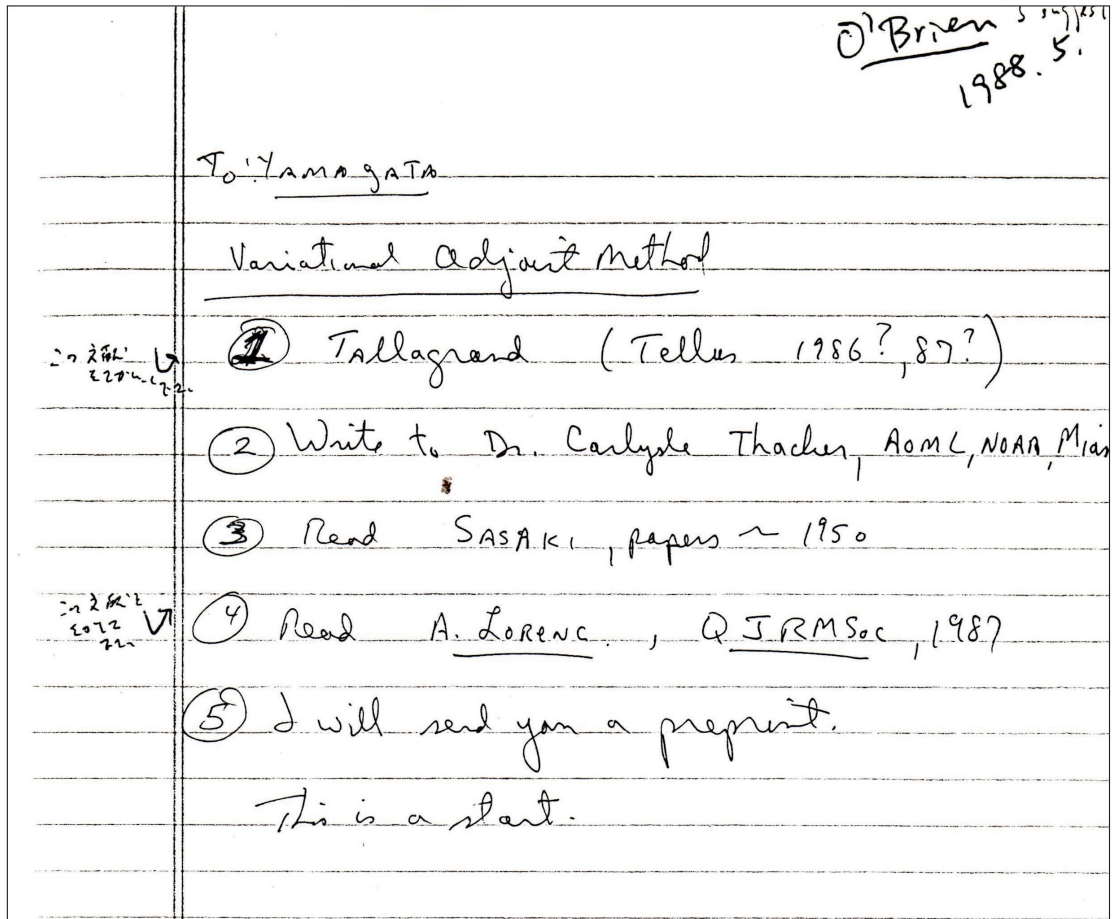 O'Brien's suggest
1988. 5.
To: YAMAgATA
Variational Adjoint Method
1 TAllagrand (Tellus 1986?, 87?)
この文献
2 Write to Dr. Carlyle Thacker, AOML, NOAA, Miam
3 Read SASAKI, papers ~ 1950
この文献を
4 Read A. LORENC., QJRMSoc, 1987
5 I will send you a preprint.
This is a start.